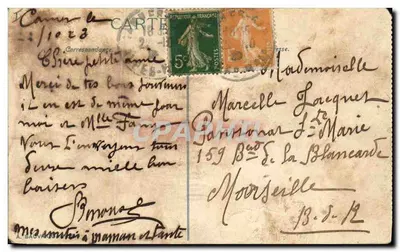 CARTE
Cannes le
2/10 23
Correspondance
Chère petite amie
Merci de tes bons souvenirs
il en est de même pour
moi et Mlle Fa
Nous t'envoyons tous
deux mille bon
baisers
Mes amitiés à maman et tante
REPUBLIQUE FRANÇAISE
5c
POSTES
Mademoiselle
Marcelle Jacquet
Pensionnat Ste Marie
159 Bard de la Blancarde
Marseille
B-d-R